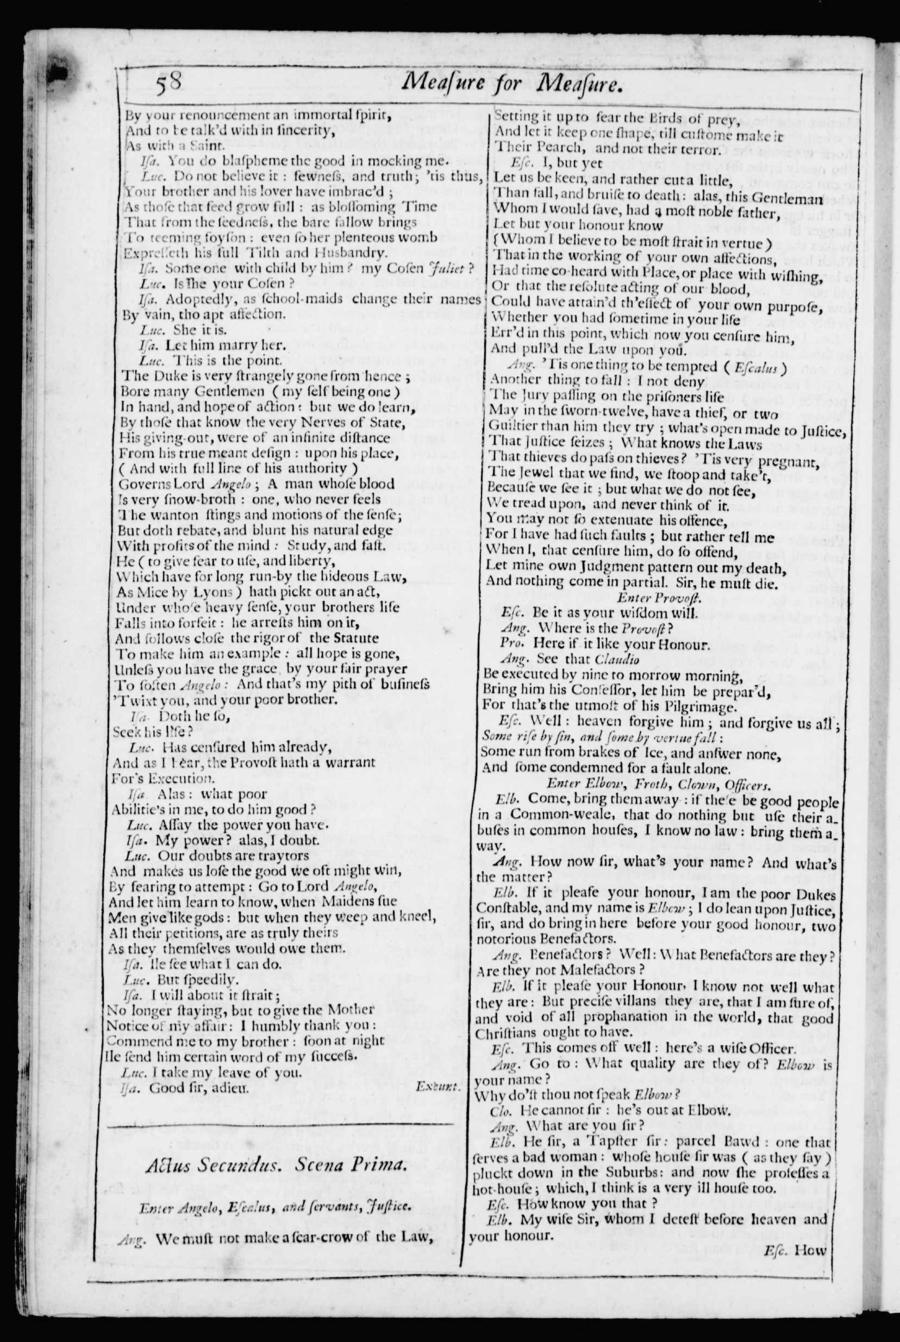 58
Meaſure for Meaſure.
By your renouncement an immortal ſpirit,
And to be talk'd with in ſincerity,
As with a Saint.
Iſa. You do blaſpheme the good in mocking me.
Luc. Do not believe it: fewneſs, and truth; 'tis thus,
Your brother and his lover have imbrac'd;
As thoſe that feed grow full: as bloſſoming Time
That from the ſeedneſs, the bare fallow brings
To teeming foyſon: even ſo her plenteous womb
Expreſſeth his full Tilth and Husbandry.
Iſa. Some one with child by him? my Coſen Juliet?
Luc. Is ſhe your Coſen?
Iſa. Adoptedly, as ſchool-maids change their names
By vain, tho apt affection.
Luc. She it is.
Iſa. Let him marry her.
Luc. This is the point.
The Duke is very ſtrangely gone from hence;
Bore many Gentlemen (my ſelf being one)
In hand, and hope of action: but we do learn,
By thoſe that know the very Nerves of State,
His giving-out, were of an infinite diſtance
From his true meant deſign: upon his place,
(And with full line of his authority)
Governs Lord Angelo; A man whoſe blood
Is very ſnow-broth: one, who never feels
The wanton ſtings and motions of the ſenſe;
But doth rebate, and blunt his natural edge
With profits of the mind: Study, and faſt.
He (to give fear to uſe, and liberty,
Which have for long run-by the hideous Law,
As Mice by Lyons) hath pickt out an act,
Under whoſe heavy ſenſe, your brothers life
Falls into forfeit: he arreſts him on it,
And follows cloſe the rigor of the Statute
To make him an example: all hope is gone,
Unleſs you have the grace by your fair prayer
To ſoften Angelo: And that's my pith of buſineſs
'Twixt you, and your poor brother.
Iſa. Doth he ſo,
Seek his life?
Luc. Has cenſured him already,
And as I hear, the Provoſt hath a warrant
For's Execution.
Iſa Alas: what poor
Abilitie's in me, to do him good?
Luc. Aſſay the power you have.
Iſa. My power? alas, I doubt.
Luc. Our doubts are traytors
And makes us loſe the good we oft might win,
By fearing to attempt: Go to Lord Angelo,
And let him learn to know, when Maidens ſue
Men give like gods: but when they weep and kneel,
All their petitions, are as truly theirs
As they themſelves would owe them.
Iſa. Ile ſee what I can do.
Luc. But ſpeedily.
Iſa. I will about it ſtrait;
No longer ſtaying, but to give the Mother
Notice of my affair: I humbly thank you:
Commend me to my brother: ſoon at night
Ile ſend him certain word of my ſucceſs.
Luc. I take my leave of you.
Iſa. Good ſir, adieu. Exeunt.
Actus Secundus. Scena Prima.
Enter Angelo, Eſcalus, and ſervants, Juſtice.
Ang. We muſt not make a ſcar-crow of the Law,
Setting it up to fear the Birds of prey,
And let it keep one ſhape, till cuſtome make it
Their Pearch, and not their terror.
Eſc. I, but yet
Let us be keen, and rather cut a little,
Than fall, and bruiſe to death: alas, this Gentleman
Whom I would ſave, had a moſt noble father,
Let but your honour know
(Whom I believe to be moſt ſtrait in vertue)
That in the working of your own affections,
Had time co-heard with Place, or place with wiſhing,
Or that the reſolute acting of our blood,
Could have attain'd th'effect of your own purpoſe,
Whether you had ſometime in your life
Err'd in this point, which now you cenſure him,
And pull'd the Law upon you.
Ang. 'Tis one thing to be tempted (Eſcalus)
Another thing to fall: I not deny
The Jury paſſing on the priſoners life
May in the ſworn-twelve, have a thief, or two
Guiltier than him they try; what's open made to Juſtice,
That Juſtice ſeizes; What knows the Laws
That thieves do paſs on thieves? 'Tis very pregnant,
The Jewel that we find, we ſtoop and take't,
Becauſe we ſee it; but what we do not ſee,
We tread upon, and never think of it.
You may not ſo extenuate his offence,
For I have had ſuch faults; but rather tell me
When I, that cenſure him, do ſo offend,
Let mine own Judgment pattern out my death,
And nothing come in partial. Sir, he muſt die.
Enter Provoſt.
Eſc. Be it as your wiſdom will.
Ang. Where is the Provoſt?
Pro. Here if it like your Honour.
Ang. See that Claudio
Be executed by nine to morrow morning,
Bring him his Confeſſor, let him be prepar'd,
For that's the utmoſt of his Pilgrimage.
Eſc. Well: heaven forgive him; and forgive us all;
Some riſe by ſin, and ſome by vertue fall:
Some run from brakes of Ice, and anſwer none,
And ſome condemned for a fault alone.
Enter Elbow, Froth, Clown, Officers.
Elb. Come, bring them away: if theſe be good people
in a Common-weale, that do nothing but uſe their a-
buſes in common houſes, I know no law: bring them a-
way.
Ang. How now ſir, what's your name? And what's
the matter?
Elb. If it pleaſe your honour, I am the poor Dukes
Conſtable, and my name is Elbow; I do lean upon Juſtice,
ſir, and do bring in here before your good honour, two
notorious Benefactors.
Ang. Benefactors? Well: What Benefactors are they?
Are they not Malefactors?
Elb. If it pleaſe your Honour, I know not well what
they are: But preciſe villans they are, that I am ſure of,
and void of all prophanation in the world, that good
Chriſtians ought to have.
Eſc. This comes off well: here's a wiſe Officer.
Ang. Go to: What quality are they of? Elbow is
your name?
Why do'ſt thou not ſpeak Elbow?
Clo. He cannot ſir: he's out at Elbow.
Ang. What are you ſir?
Elb. He ſir, a Tapſter ſir: parcel Bawd: one that
ſerves a bad woman: whoſe houſe ſir was (as they ſay)
pluckt down in the Suburbs: and now ſhe profeſſes a
hot-houſe; which, I think is a very ill houſe too.
Eſc. How know you that?
Elb. My wife Sir, whom I deteſt before heaven and
your honour.
Eſc. How